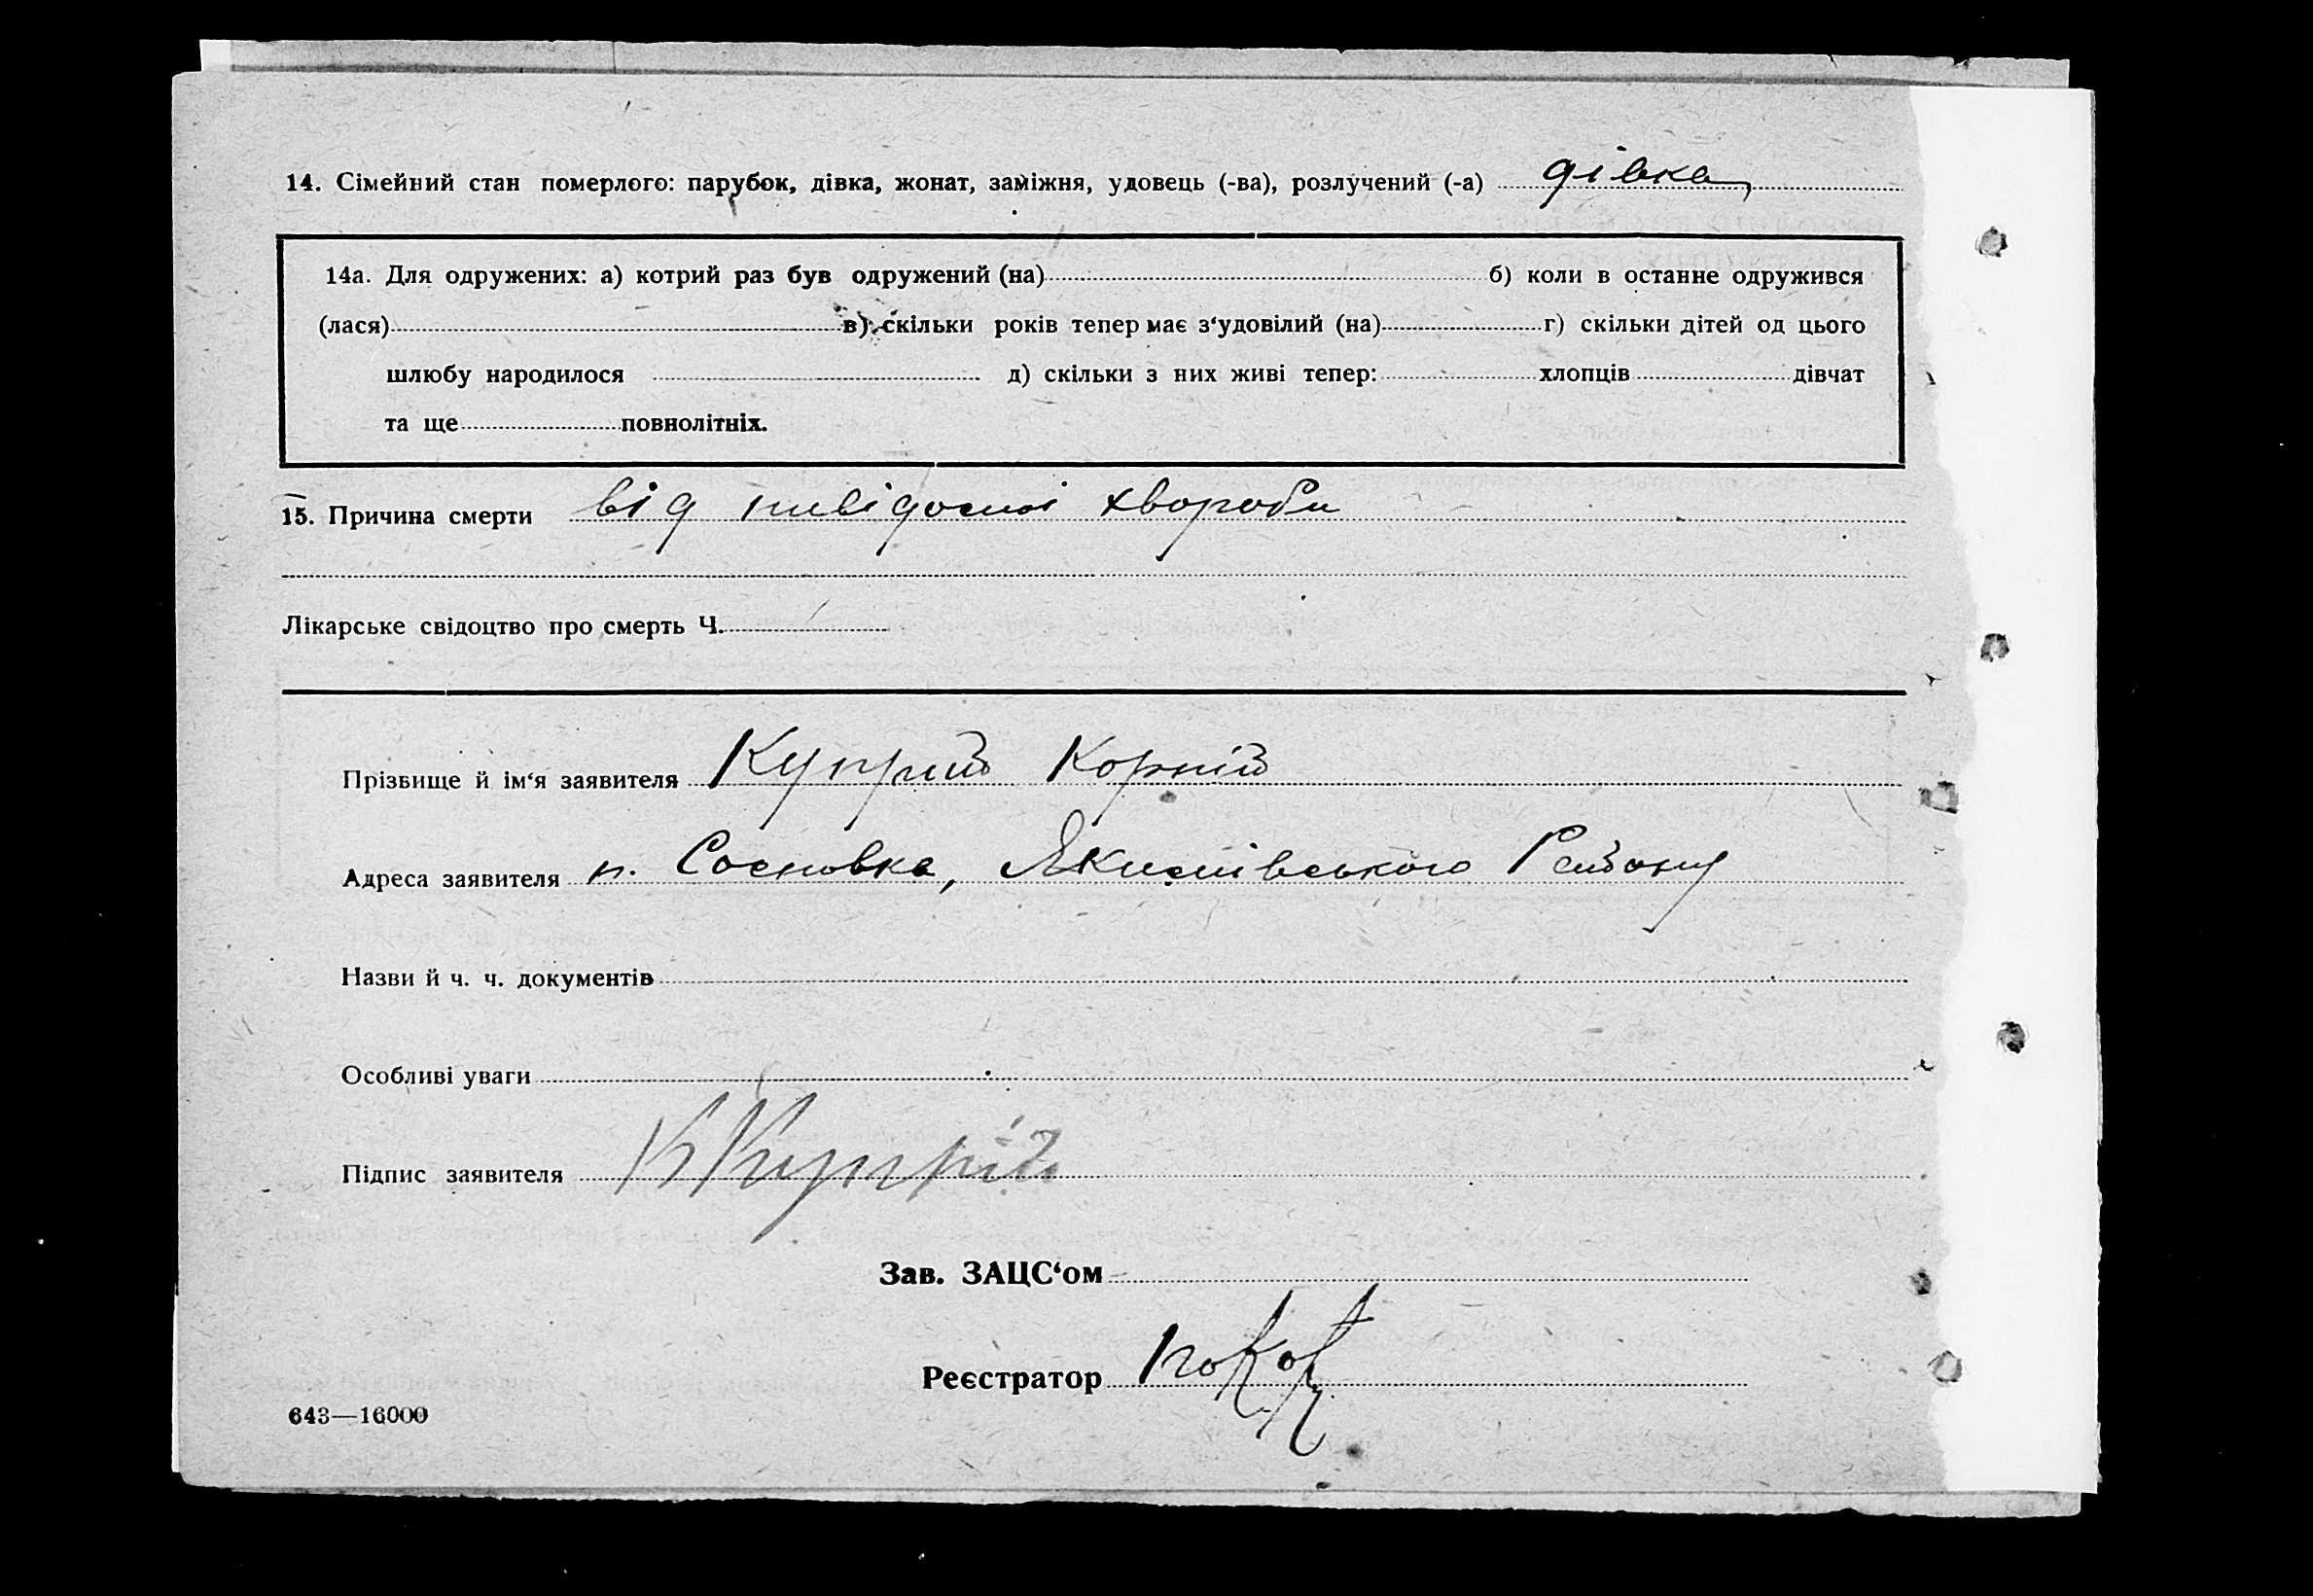 14. Сімейний стан померлого: парубок, дівка, жонат, заміжня, удовець (-ва), розлучений (-а) дівка
14а. Для одружених: а) котрий раз був одружений (на) б) коли в останне одружився
(лася) в) скільки років тепер має з‘удовілий (на) г) скільки дітей од цього
шлюбу народилося д) скільки з них живі тепер: хлопців дівчат
та ще повнолітніх.
15. Причина смерти від невідомої хвороби
Лікарське свідоцтво про смерть Ч.
Прізвище й ім‘я заявителя Куприй Корній
Адреса заявителя п. Сосновка, Якимівського Району
Назви й ч. ч. документів
Особливі уваги
Підпис заявителя К Купрій
Зав. ЗАЦС‘ом
Реєстратор
643—16000